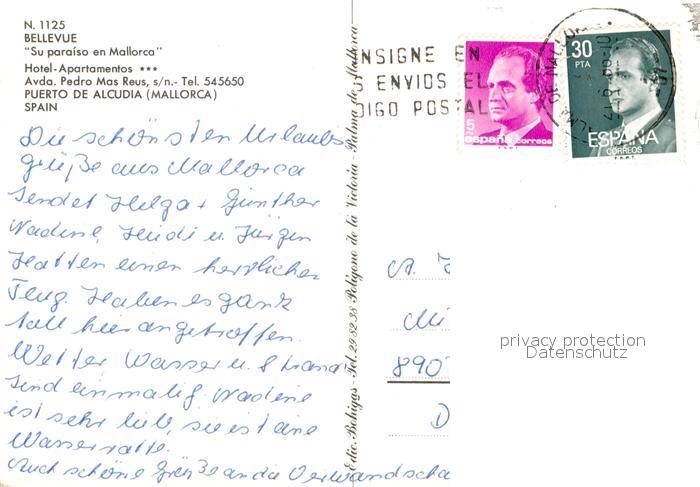 N. 1125
BELLEVUE
"Su paraíso en Mallorca"
Hotel-Apartamentos ***
Avda. Pedro Mas Reus, s/n.- Tel. 545650
PUERTO DE ALCUDIA (MALLORCA)
SPAIN
Die schönsten Urlaubs
grüße aus Mallorca
sendet Helga + Günther
Nadine, Heidi u. Jürgen
Hatten einen herrlichen
Flug. Haben es ganz
toll hier angetroffen.
Wetter Wasser u. Strand
sind einmalig. Nadine
ist sehr lieb, sie ist eine
Wasserratte.
Auch schöne Grüße an die Verwandscha
Edic. Bohigas - Tel. 29 82 38 Polígono de la Victoria - Palma de Mallorca
NSIGNE EN
ENVIOS EL
DIGO POSTAL
5
españa correos
30
PTA
ESPAÑA
CORREOS
F.N.M.T.
MA DE MALLOR
890
D
privacy protection
Datenschutz